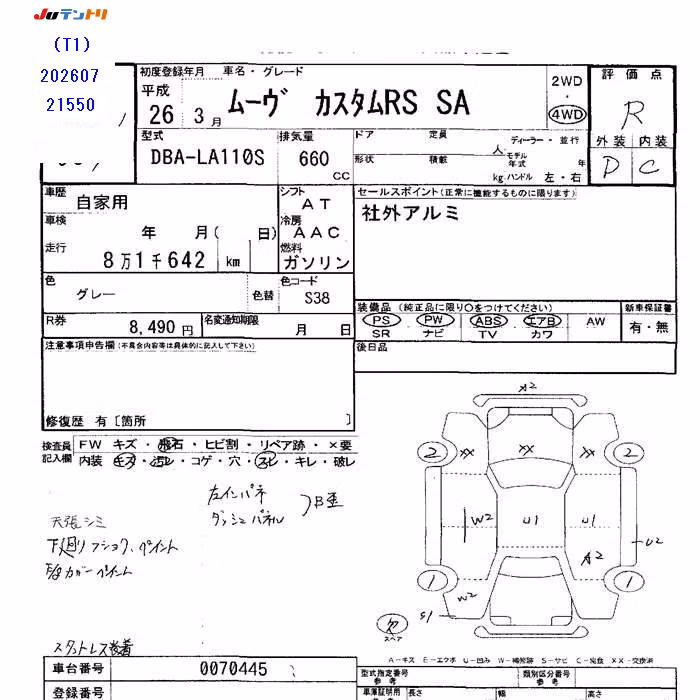 JUテントリ
(T1)
202607
21550
初度登録年月 車名・グレード
平成 26 3月
ムーヴ カスタムRS SA
2WD
・
4WD
評価点
R
外装 内装
D C
型式
DBA-LA110S
排気量
660 CC
ドア 定員 人
形状 積載 kg
ディーラー・並行
モデル年式 年
ハンドル 左・右
車歴
自家用
シフト
AT
セールスポイント(正常に機能するものに限ります)
社外アルミ
車検
年 月( 日)
冷房
AAC
走行
8万1千642 km
燃料
ガソリン
色
グレー
色替
色コード
S38
装備品 (純正品に限り○をつけてください)
PS PW ABS エアB AW
SR ナビ TV カワ
新車保証書
有・無
R券
8,490円
名変通知期限
月 日
後日品
注意事項申告欄(不具合内容等は具体的に記入して下さい)
修復歴 有〔箇所 〕
検査員記入欄
FW キズ・飛石・ヒビ割・リペア跡・×要
内装 キズ・汚レ・コゲ・穴・スレ・キレ・破レ
左インパネ
ダッシュパネル
B歪
天張シミ
下廻りフショク、ペイント
スタットレス装着
A2
2 XX XX 2
W2 U1 U1
U2
A2
1 1
W2
S1
欠
スペア
A-キズ E-エクボ U-凹み W-補修跡 S-サビ C-腐食 XX-交換済
車台番号
0070445
登録番号
型式指定番号
参考
類別区分番号
参考
車庫証明用
長さ 幅 高さ